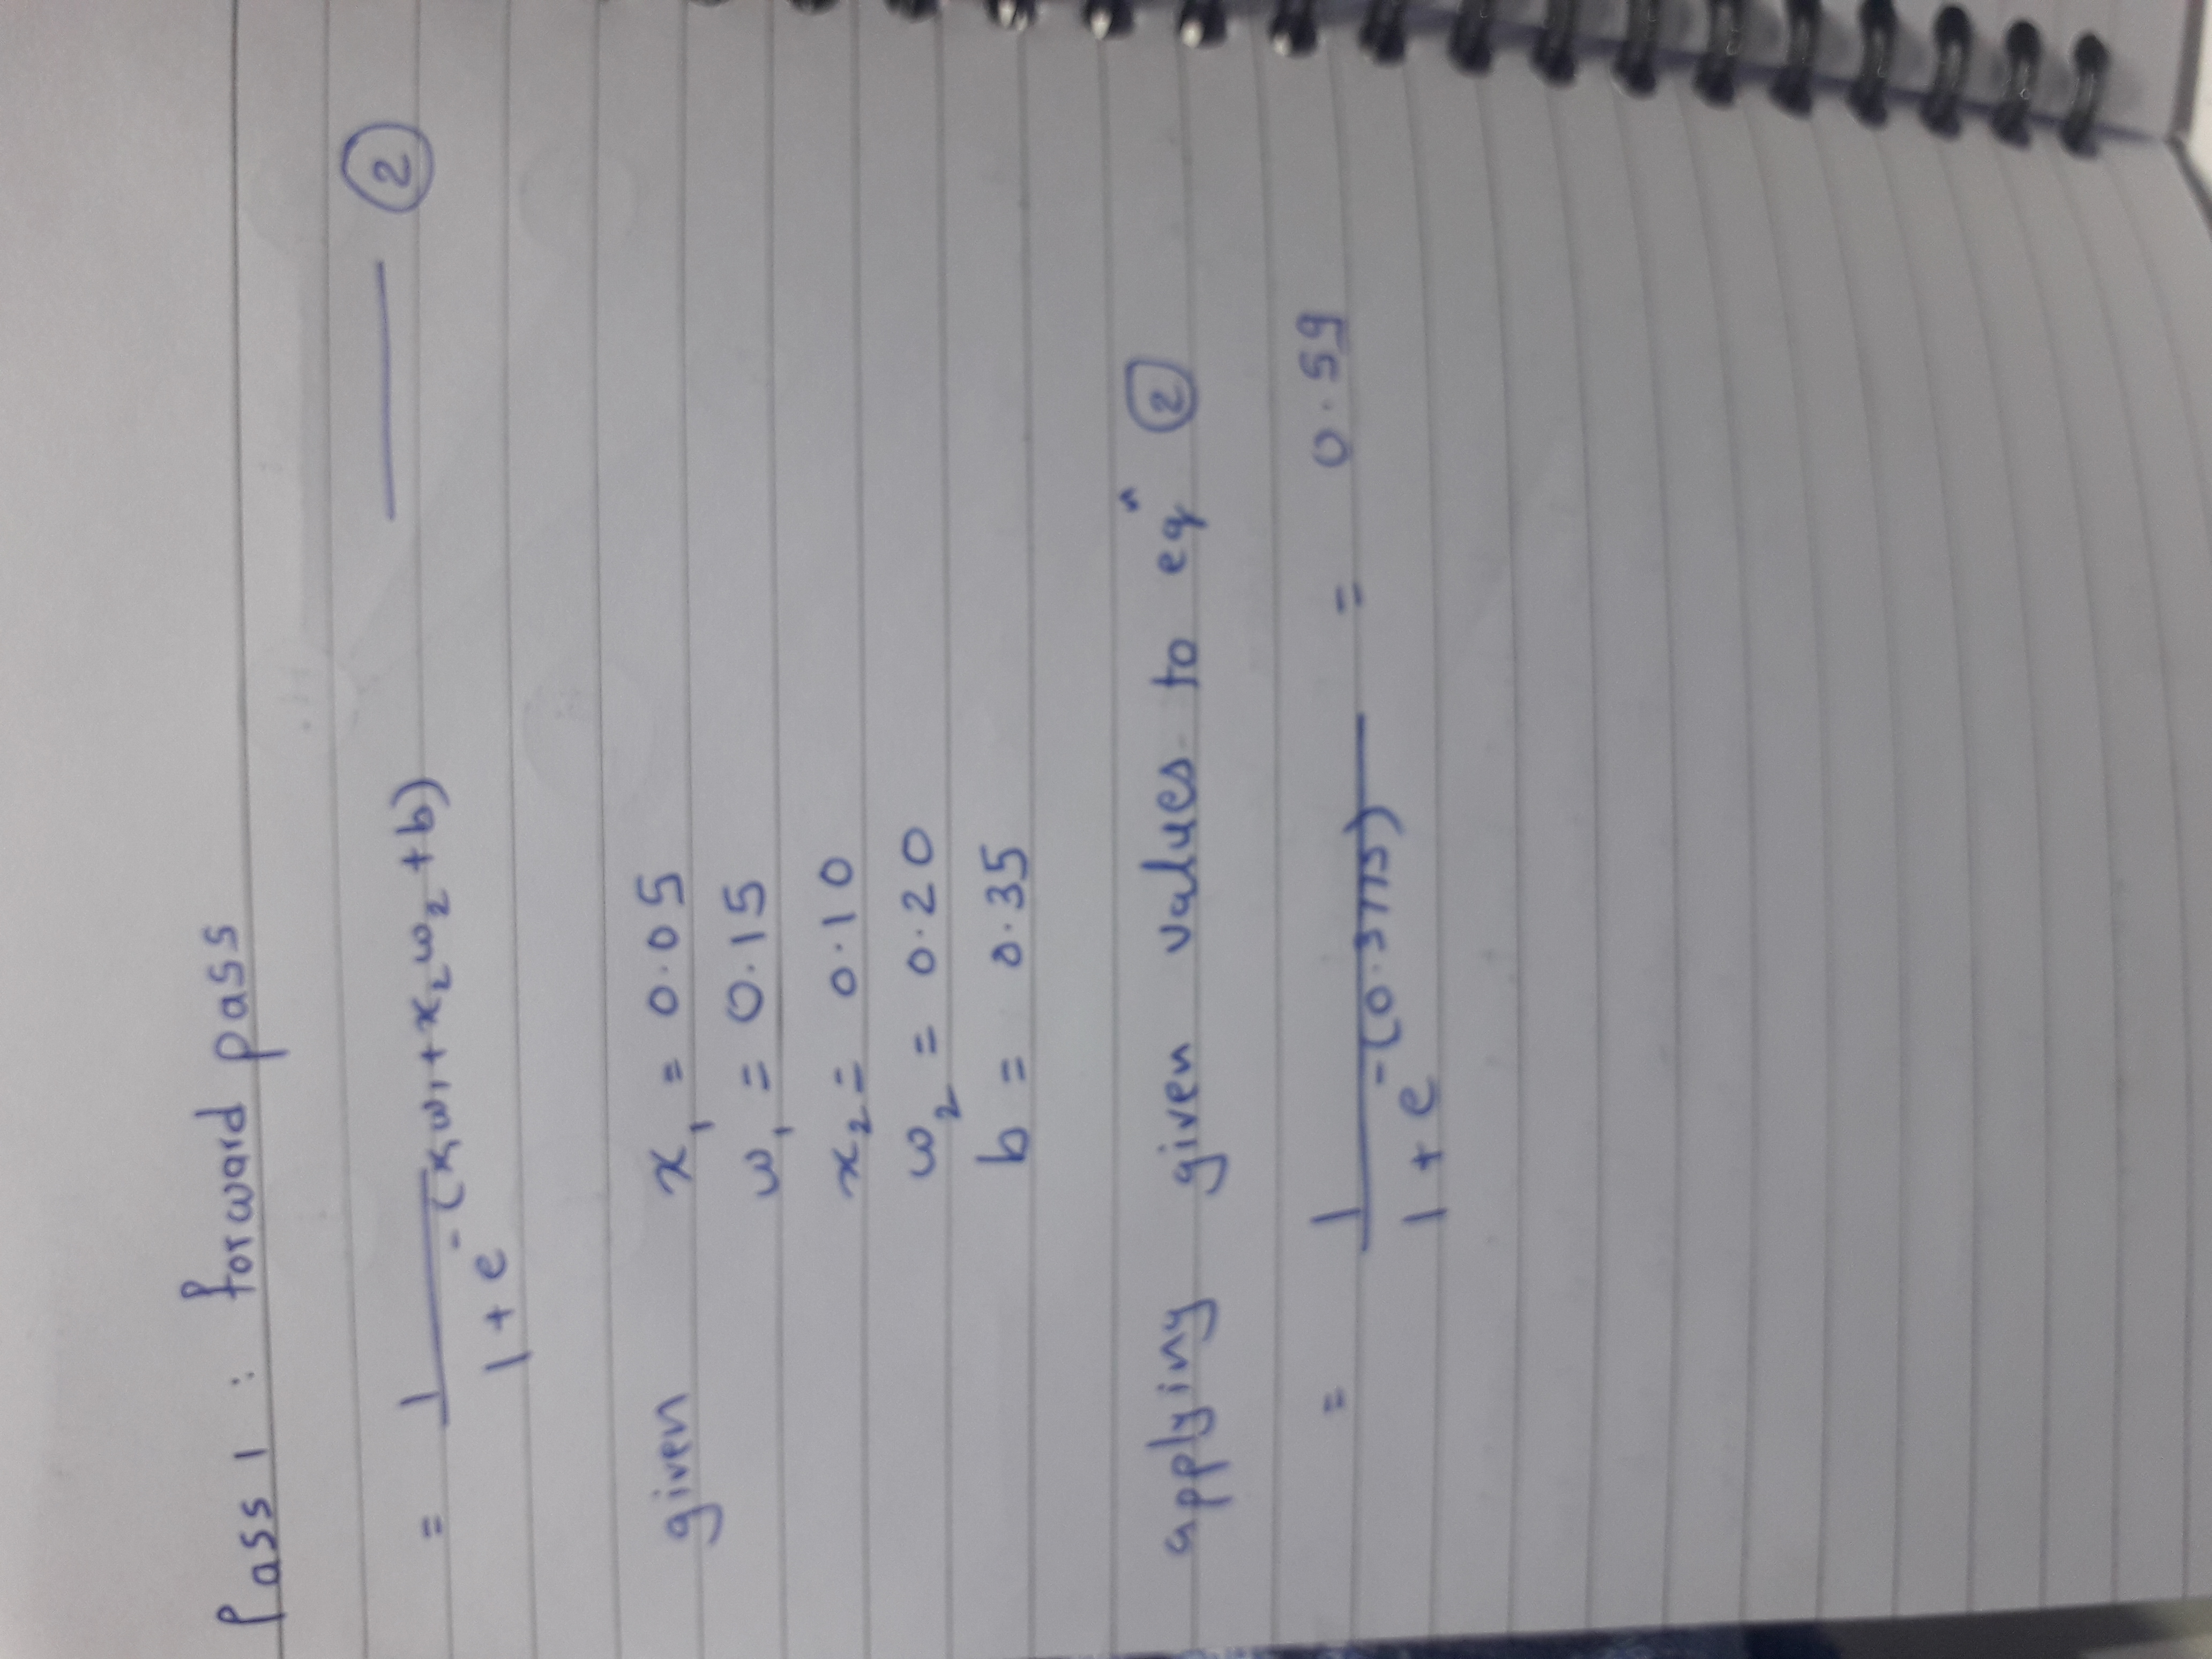 Pass 1 : forward pass
= 1 / 1 + e^-(x₁w₁ + x₂w₂ + b) —— ②
given x₁ = 0.05
w₁ = 0.15
x₂ = 0.10
w₂ = 0.20
b = 0.35
applying given values to eqⁿ ②
= 1 / 1 + e^-(0.3775) = 0.59